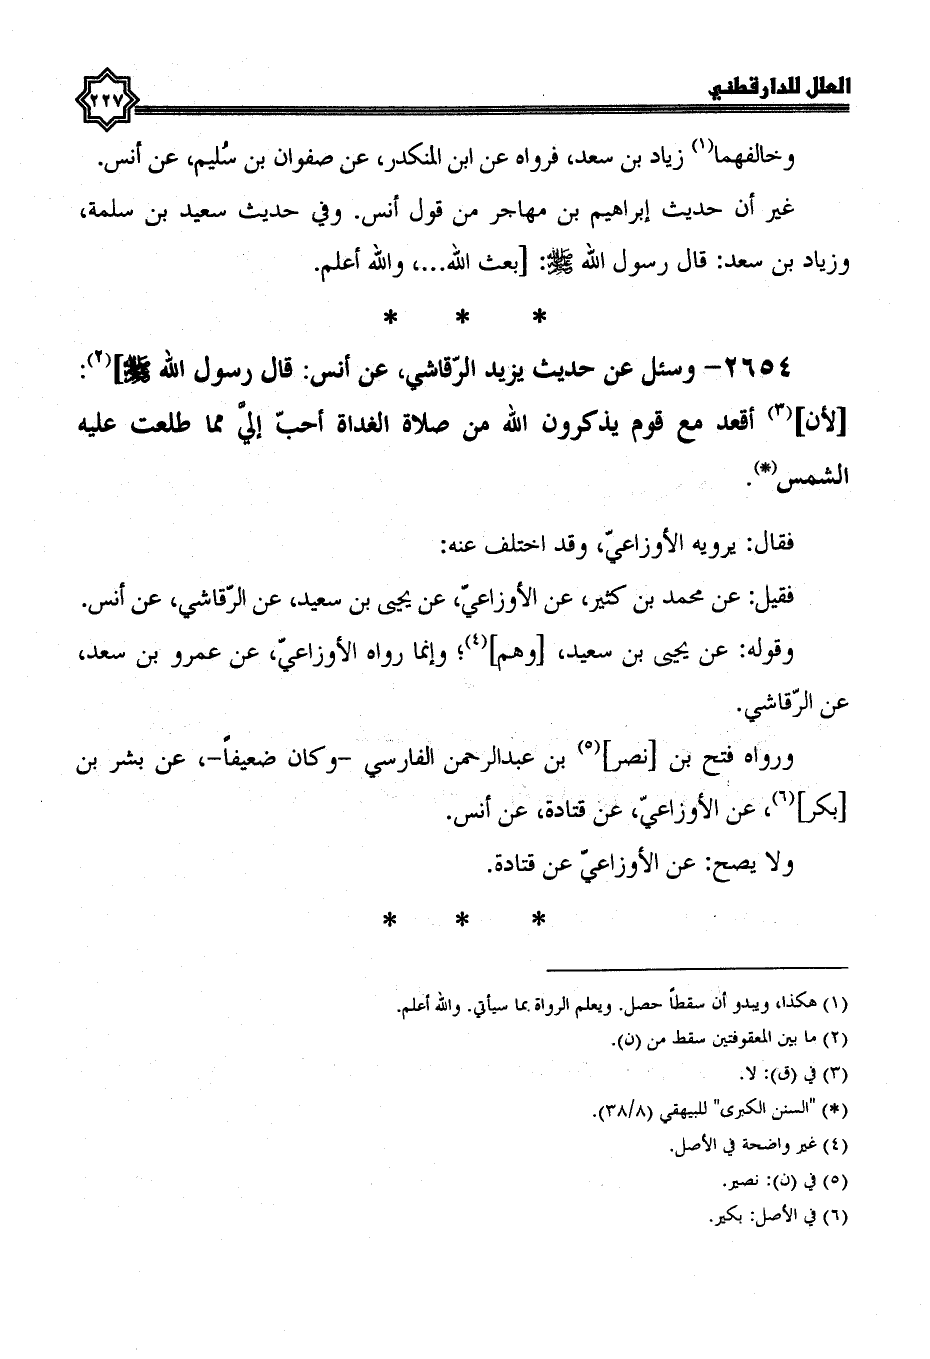 العلل للدارقطني
٢٢٧
وخالفهما(١) زياد بن سعد، فرواه عن ابن المنكدر، عن صفوان بن سُليم، عن أنس.
غير أن حديث إبراهيم بن مهاجر من قول أنس. وفي حديث سعيد بن سلمة،
وزياد بن سعد: قال رسول الله ﷺ: [بعث الله...، والله أعلم.
* * *
٢٦٥٤- وسئل عن حديث يزيد الرّقاشي، عن أنس: قال رسول الله ﷺ](٢):
[لأن](٣) أقعد مع قوم يذكرون الله من صلاة الغداة أحبّ إليَّ مما طلعت عليه
الشمس(*).
فقال: يرويه الأوزاعيّ، وقد اختلف عنه:
فقيل: عن محمد بن كثير، عن الأوزاعيّ، عن يحيى بن سعيد، عن الرّقاشي، عن أنس.
وقوله: عن يحيى بن سعيد، [وهم](٤)؛ وإنما رواه الأوزاعيّ، عن عمرو بن سعد،
عن الرّقاشي.
ورواه فتح بن [نصر](٥) بن عبدالرحمن الفارسي -وكان ضعيفاً-، عن بشر بن
[بكر](٦)، عن الأوزاعيّ، عن قتادة، عن أنس.
ولا يصح: عن الأوزاعيّ عن قتادة.
* * *
(١) هكذا، ويبدو أن سقطاً حصل. ويعلم الرواة بما سيأتي. والله أعلم.
(٢) ما بين المعقوفتين سقط من (ن).
(٣) في (ق): لا.
(*) "السنن الكبرى" للبيهقي (٣٨/٨).
(٤) غير واضحة في الأصل.
(٥) في (ن): نصير.
(٦) في الأصل: بكير.